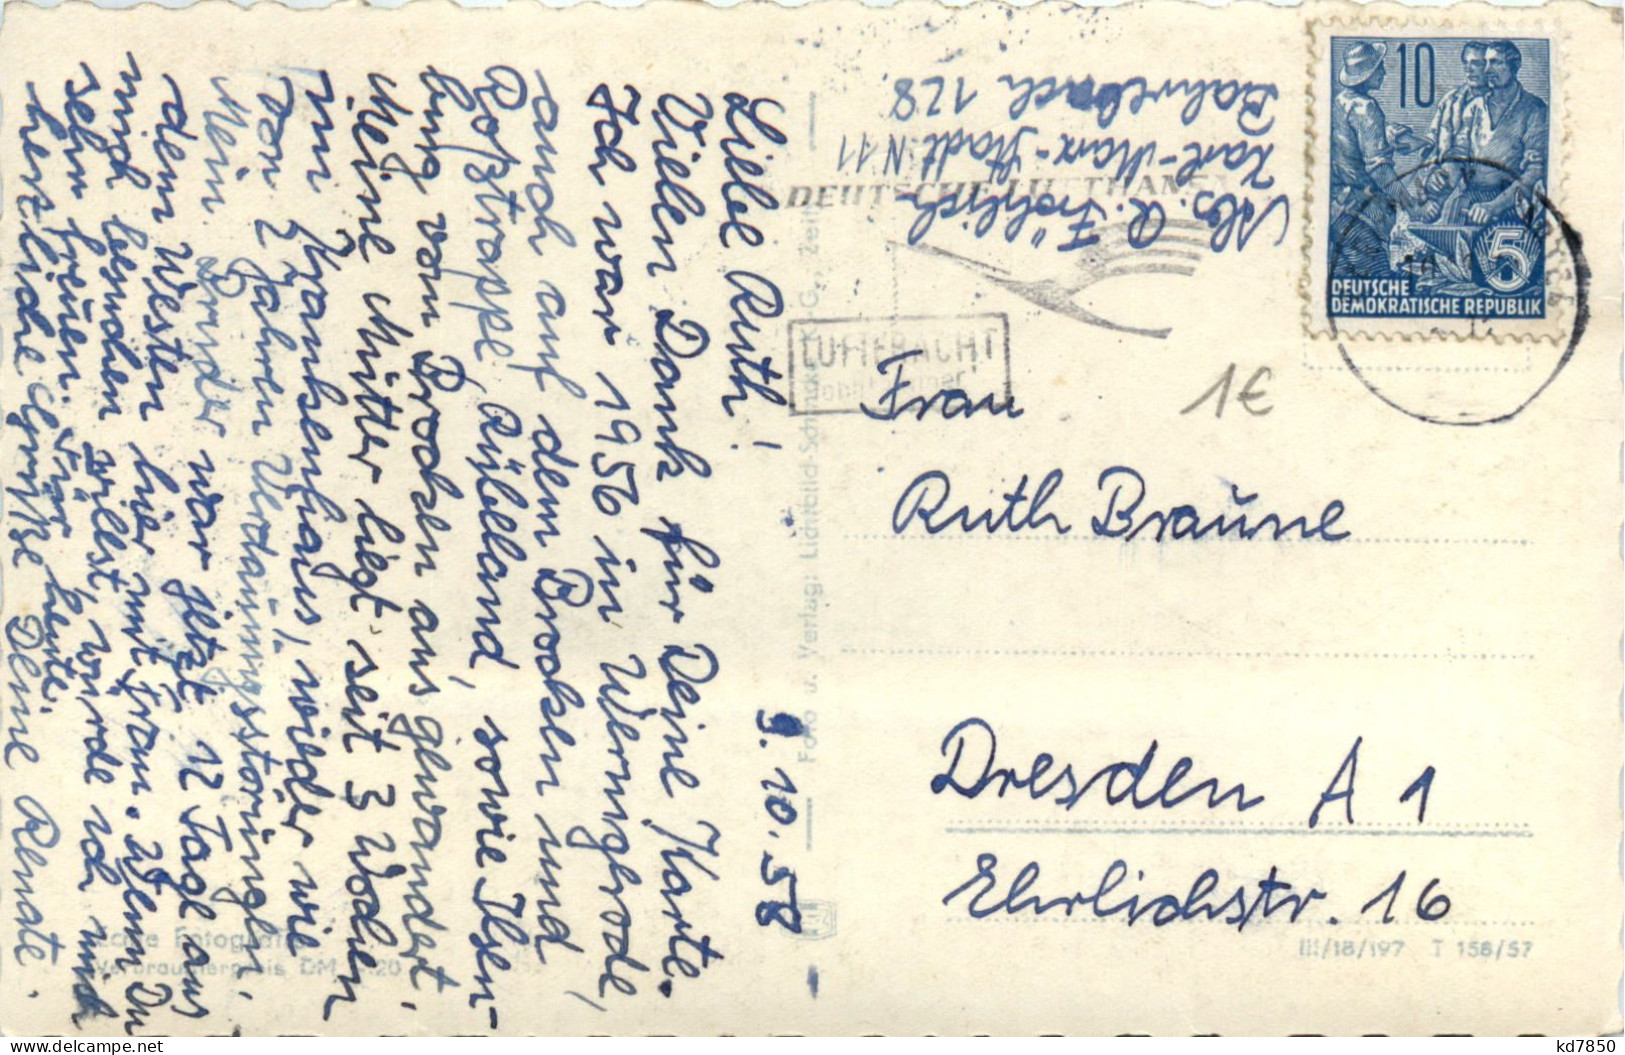 9. 10. 58
Liebe Ruth!
Vielen Dank für Deine Karte.
Ich war 1956 in Wernigerode,
auch auf dem Brocken und
Roßtrappe, Rübeland, sowie Ilsen-
burg vom Brocken aus gewandert.
Meine Mutter liegt seit 3 Wochen
im Krankenhaus, wieder wie
vor 2 Jahren Verdauungsstörungen.
Mein Bruder war jetzt 12 Tage aus
dem Westen hier mit Frau. Wenn Du
mich besuchen willst, würde ich mich
sehr freuen. Für heute
herzliche Grüße Deine Renate.
Abs. R. Fröhlich
Karl-Marx-Stadt N 11
Bahrebach 128
10
5
DEUTSCHE
DEMOKRATISCHE REPUBLIK
DEUTSCHE LUFTHANSA
LUFTFRACHT
1€
Frau
Ruth Braune
Dresden A 1
Ehrlichstr. 16
Foto u. Verlag: Lichtbild-
Echte Fotografie
Verbraucherpreis DM 0.20
III/18/197 T 156/57
kd7850